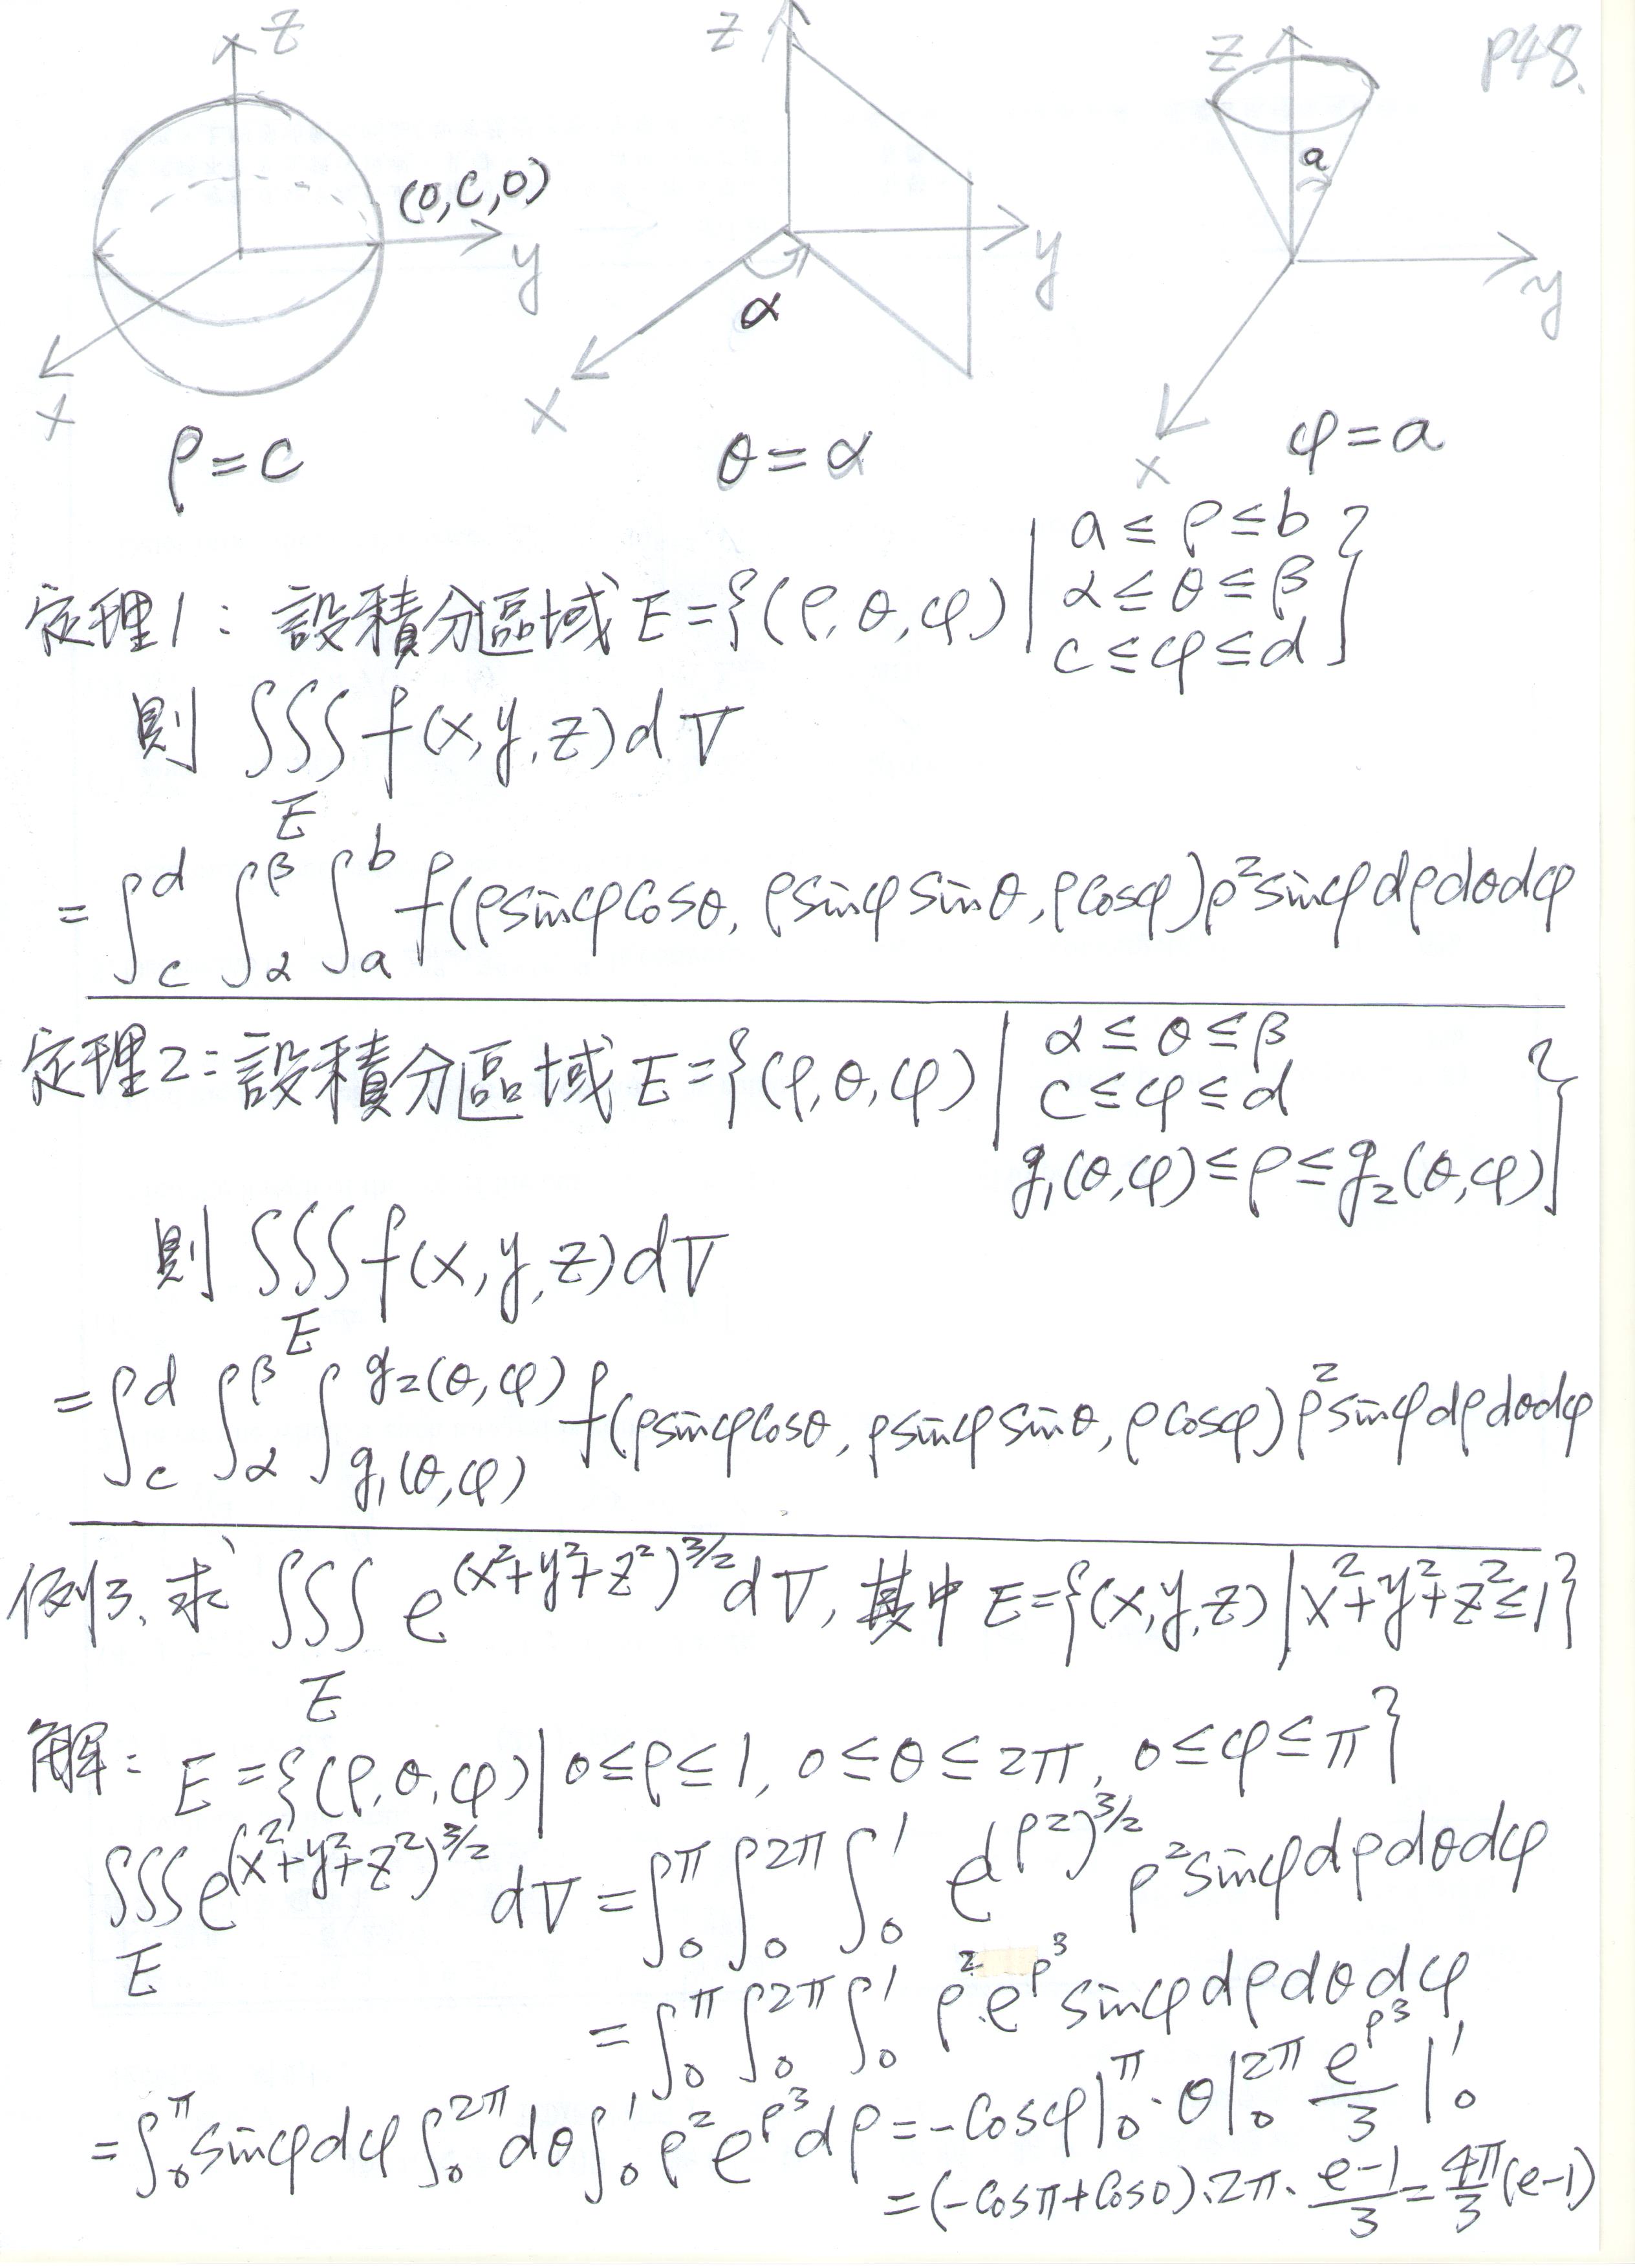 P48.
z
(0,C,0)
y
x
ρ=C
z
y
α
x
θ=α
z
a
y
x
φ=a
定理1：設積分區域 E={(ρ,θ,φ)| a≤ρ≤b
α≤θ≤β
c≤φ≤d}
則 ∫∫∫_E f(x,y,z)dV
=∫_c^d ∫_α^β ∫_a^b f(ρsinφcosθ, ρsinφsinθ, ρcosφ)ρ²sinφdρdθdφ
定理2：設積分區域 E={(ρ,θ,φ)| α≤θ≤β
c≤φ≤d
g₁(θ,φ)≤ρ≤g₂(θ,φ)}
則 ∫∫∫_E f(x,y,z)dV
=∫_c^d ∫_α^β ∫_{g₁(θ,φ)}^{g₂(θ,φ)} f(ρsinφcosθ, ρsinφsinθ, ρcosφ)ρ²sinφdρdθdφ
例3. 求 ∫∫∫_E e^{(x²+y²+z²)^{3/2}}dV, 其中 E={(x,y,z)|x²+y²+z²≤1}
解： E={(ρ,θ,φ)|0≤ρ≤1, 0≤θ≤2π, 0≤φ≤π}
∫∫∫_E e^{(x²+y²+z²)^{3/2}} dV =∫_0^π ∫_0^{2π} ∫_0^1 e^{(ρ²)^{3/2}} ρ²sinφdρdθdφ
=∫_0^π ∫_0^{2π} ∫_0^1 ρ²·e^{ρ³} sinφdρdθdφ
=∫_0^π sinφdφ ∫_0^{2π} dθ ∫_0^1 ρ²e^{ρ³}dρ = -cosφ|_0^π · θ|_0^{2π} e^{ρ³}/3 |_0^1
=(-cosπ+cos0)·2π·(e-1)/3=4π/3(e-1)